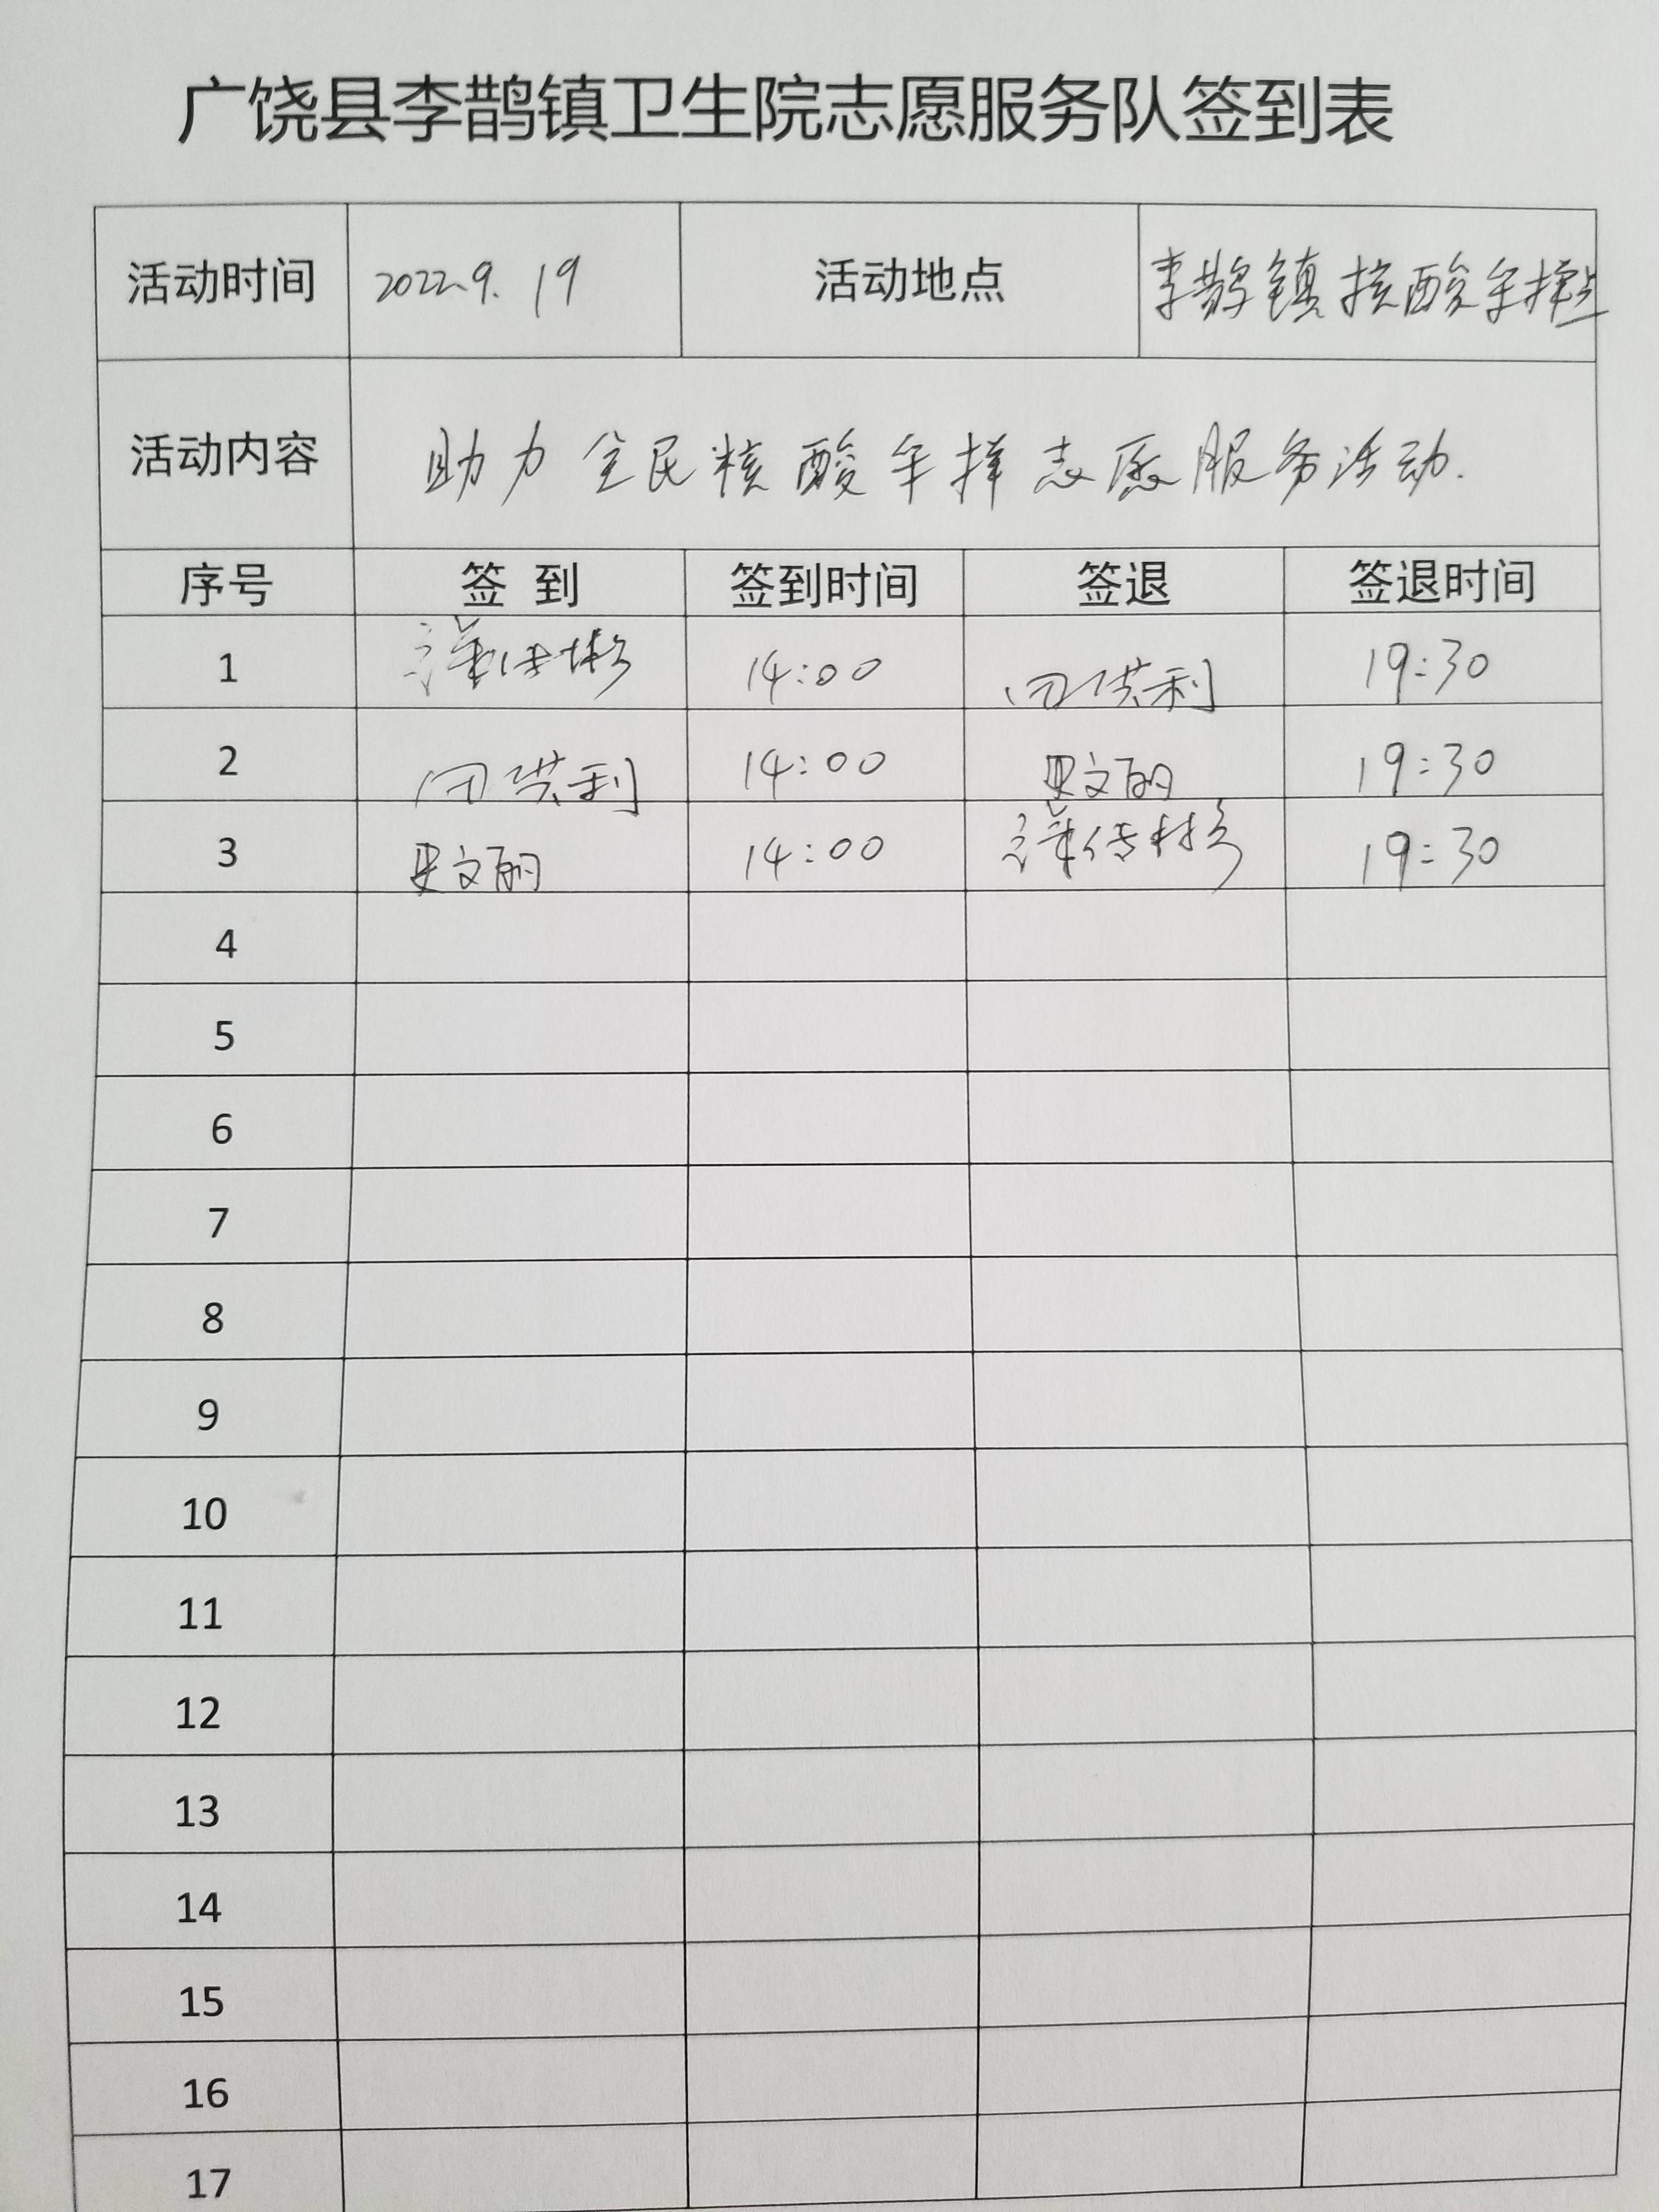 广饶县李鹊镇卫生院志愿服务队签到表
活动时间 2022.9.19 活动地点 李鹊镇核酸采样点
活动内容 助力全民核酸采样志愿服务活动.
序号 签 到 签到时间 签退 签退时间
1 14:00 闫洪利 19:30
2 闫洪利 14:00 史文丽 19:30
3 史文丽 14:00 19:30
4
5
6
7
8
9
10
11
12
13
14
15
16
17